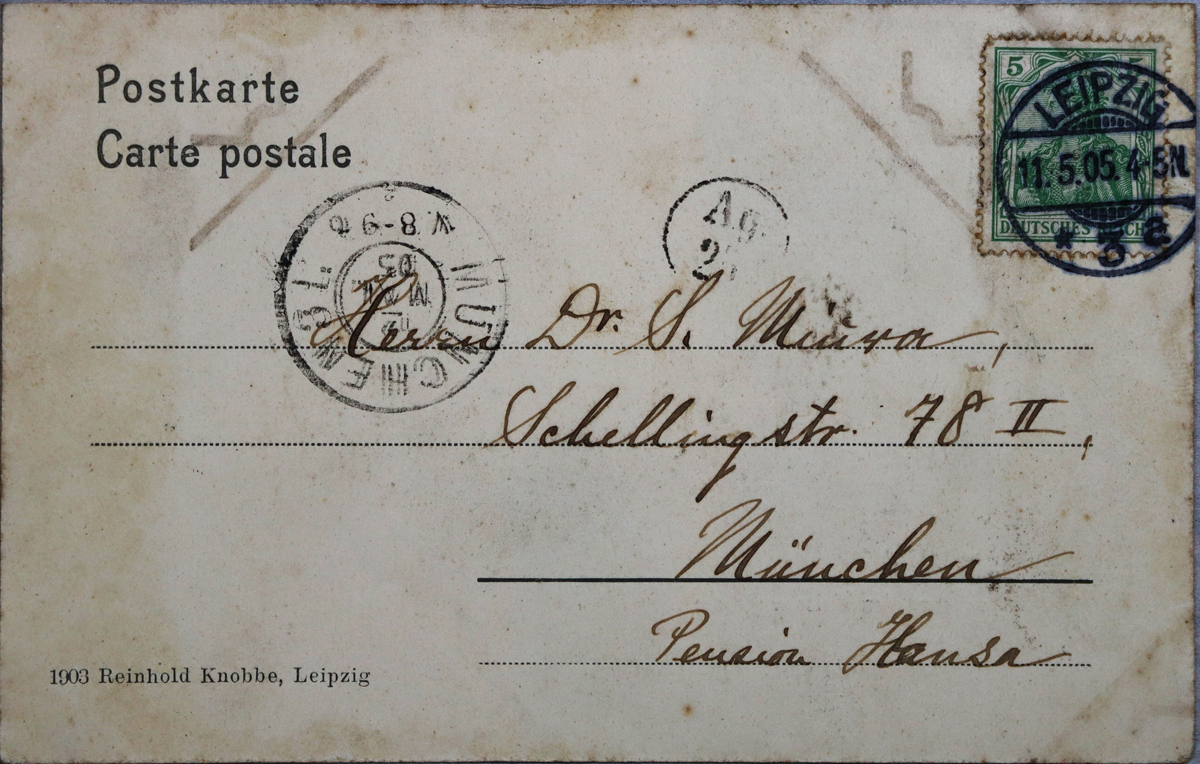 Postkarte
Carte postale
5 5
LEIPZIG
11.5.05.4-5N.
* 3 e
DEUTSCHES REICH
MÜNCHEN 31.
V 8-9
12
MAI
05
Ag.
Herrn Dr. S. Miura,
Schellingstr. 78 II,
München
Pension Hansa
1903 Reinhold Knobbe, Leipzig